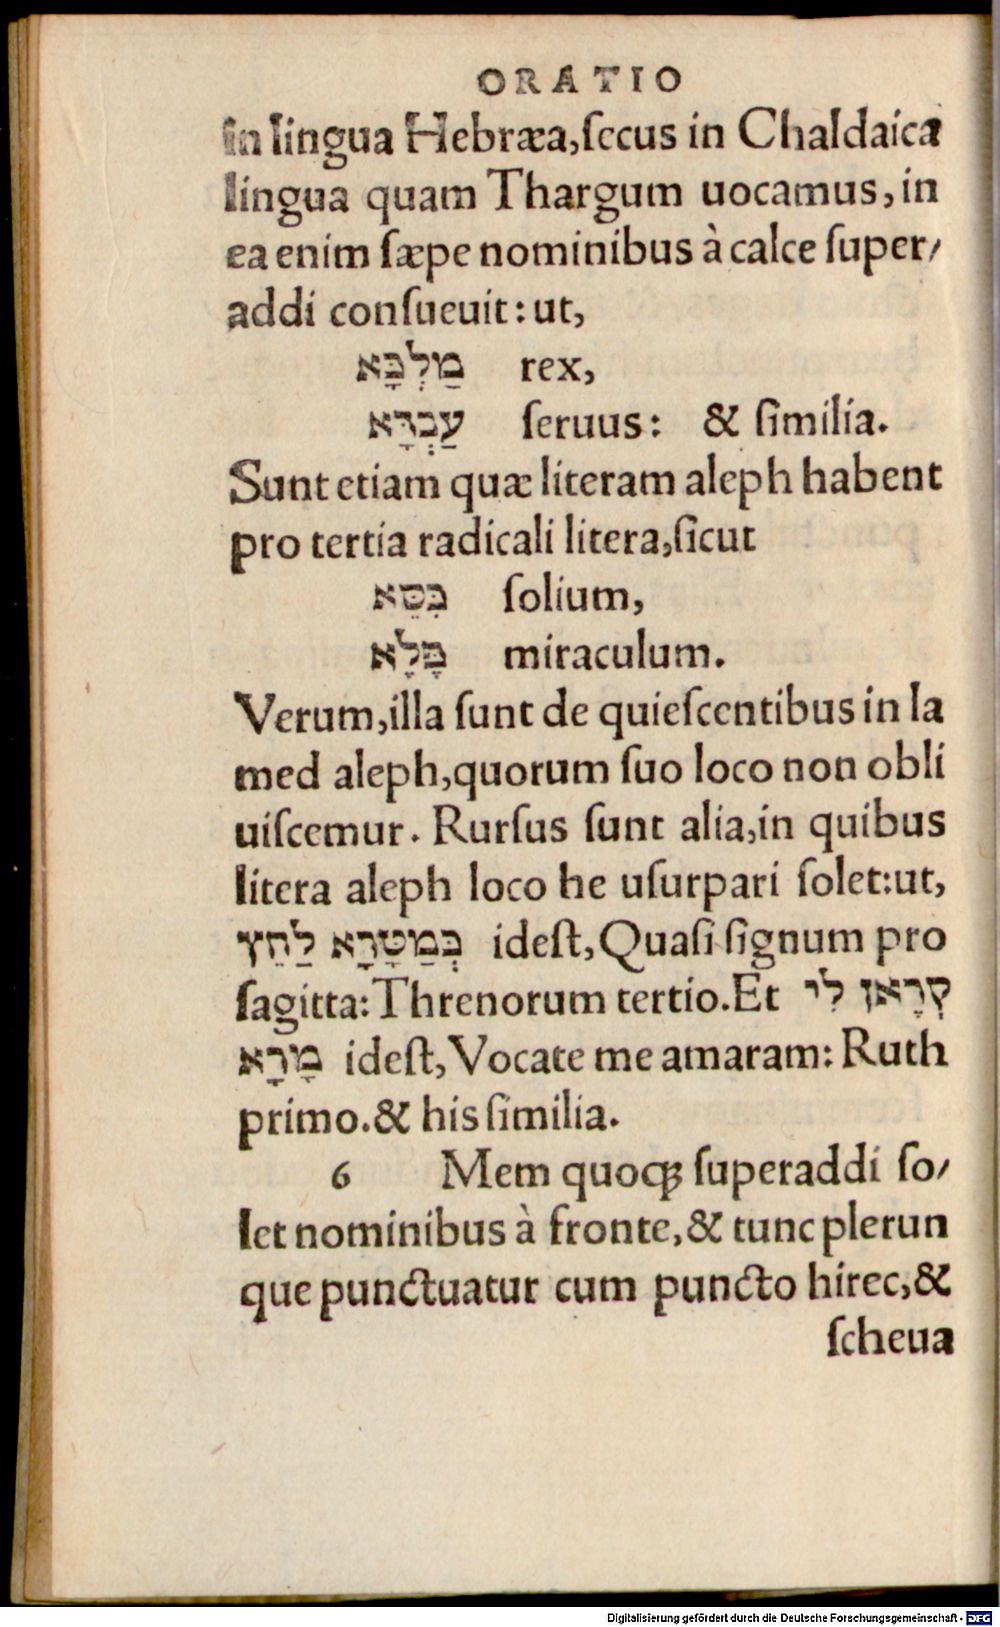 ORATIO
in lingua Hebræa,ſecus in Chaldaica
lingua quam Thargum uocamus, in
ea enim ſæpe nominibus à calce ſuper/
addi conſueuit: ut,
מַלְכָּא rex,
עַבְדָּא ſeruus: & ſimilia.
Sunt etiam quæ literam aleph habent
pro tertia radicali litera,ſicut
כִּסֵּא ſolium,
פָּלָא miraculum.
Verum,illa ſunt de quieſcentibus in la
med aleph,quorum ſuo loco non obli
uiſcemur. Rurſus ſunt alia,in quibus
litera aleph loco he uſurpari ſolet:ut,
כְּמַטָּרָא לַחֵץ ideſt, Quaſi ſignum pro
ſagitta: Threnorum tertio. Et קְרֶאןָ לִי
מָרָא ideſt, Vocate me amaram: Ruth
primo. & his ſimilia.
6 Mem quoqꝫ ſuperaddi ſo/
let nominibus à fronte,& tunc plerun
que punctuatur cum puncto hirec,&
ſcheua
Digitalisierung gefördert durch die Deutsche Forschungsgemeinschaft - DFG